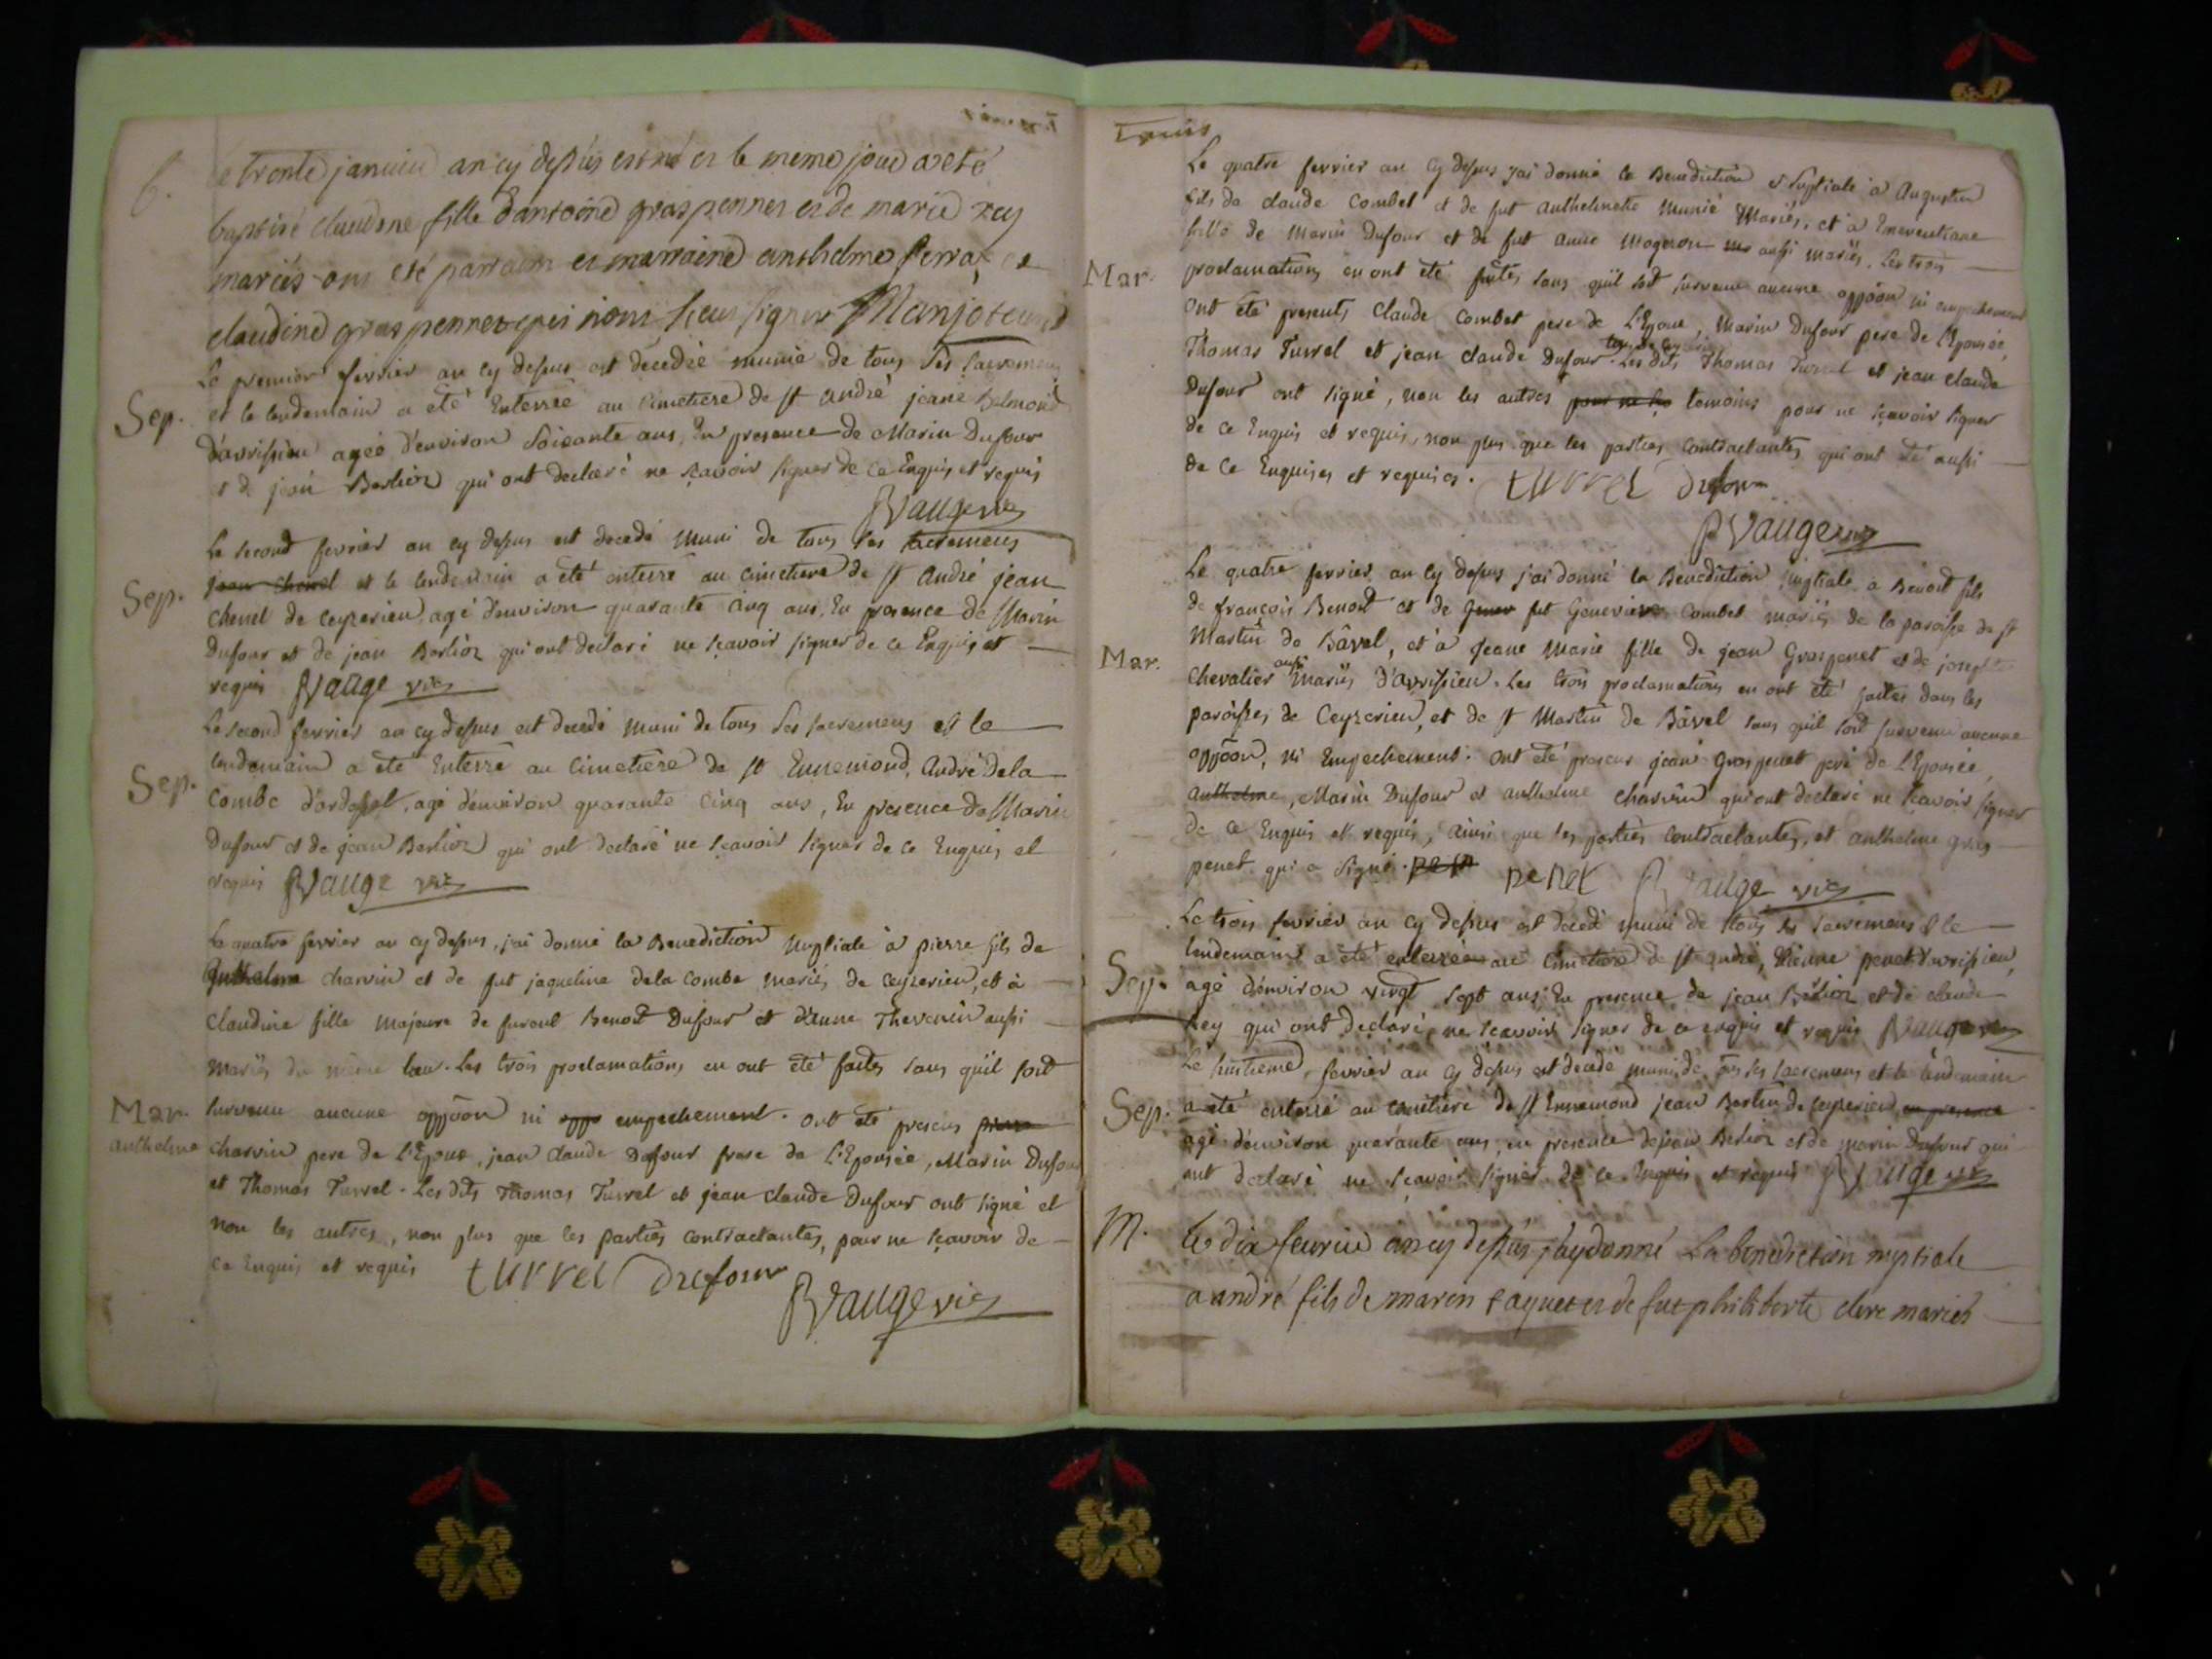 B.
trente janvier an cy dessus est né et le meme jour a eté
baptisé claudine fille d'antoine graspennet et de marie rey
mariés ont eté parrain et marraine anthelme ferra et
claudine graspennet qui n'ont sceu signer
Le premier fevrier an cy dessus est décedée munie de tous ses sacremens
Sep. et le lendemain a été Enterrée au cimetiere de st andré jeane Belmond
d'avrissieu ageé d'environ soixante ans, En presence de Marin Dufour
et de jean Berlioz qui ont declaré ne sçavoir signer de ce Enquis et requis
RVauge vic
Le second fevrier an cy dessus est decedé muni de tous ses sacremens
Sep. jean chenel et le lendemain a été enterré au cimetiere de st André jean
chenel de ceyzerieu, agé d'environ quarante cinq ans, En presence de Marin
Dufour et de jean Berlioz qui ont declaré ne sçavoir signer de ce Enquis et
requis RVauge vic
Le second fevrier an cy dessus est decedé muni de tous ses sacremens et le
Sep. lendemain a été Enterré au Cimetiere de st Ennemond, André dela
Combe d'ardosset, agé d'environ quarante cinq ans, En presence de Marin
Dufour et de jean Berlioz qui ont declaré ne sçavoir signer de ce Enquis et
requis RVauge vic
Le quatre fevrier an cy dessus, j'ai donné la Benediction Nuptiale à pierre fils de
Anthelme charvin et de fut jaqueline dela combe mariés de ceyzerieu, et à
Claudine fille majeure de furent Benoit Dufour et d'Anne Thevenin aussi
Mariés du même lieu. Les trois proclamations en ont été faites sans qu'il soit
Mar. survenu aucune oppôon ni oppo empechement. ont été presens pierre
anthelme charvin pere de l'Epoux, jean claude Dufour frere de l'Epousée, Marin Dufour
et Thomas Turrel. Les dits Thomas Turrel et jean claude Dufour ont signé et
non les autres, non plus que les parties contractantes, pour ne sçavoir de
ce Enquis et requis turrel Dufour
RVauge vic
Le quatre fevrier an cy dessus j'ai donné la Benediction Nuptiale à Augustin
fils de claude Combet et de fut anthelmette Munié Mariés, et à
fille de Marin Dufour et de fut Anne Mogeron aussi mariés. Les trois
Mar. proclamations en ont été faites sans qu'il soit survenu aucune oppôon ni empechement
ont été presents Claude Combet pere de l'Epoux, Marin Dufour pere de l'Epousée,
Thomas Turrel et jean claude Dufour. Les dits Thomas Turrel et jean claude
Dufour ont signé, non les autres pour ne sça temoins pour ne sçavoir signer
de ce Enquis et requis, non plus que les parties Contractantes qui ont été aussi
de ce Enquises et requises. turrel Dufour
RVauge vic
Le quatre fevrier an cy dessus j'ai donné la Benediction Nuptiale à Benoit fils
de françois Benoit et de Genev fut Genevieve Combet mariés de la paroisse de st
Mar. Martin de Bâvel, et à jeane Marie fille de jean Graspenet et de josephte
aussi
chevalier mariés d'avrissieu. Les trois proclamations en ont été faites dans les
paroisses de Ceyzerieu, et de st Martin de Bâvel sans qu'il soit survenu aucune
oppôon, ni Empechement. ont été presens jean Graspenet pere de l'Epousée,
anthelme, Marin Dufour et anthelme charvin qui ont declaré ne sçavoir signer
de ce Enquis et requis, ainsi que les parties contractantes, et anthelme gras
penet qui a signé. penet RVauge vic
Le trois fevrier an cy dessus est decedé muni de tous ses sacremens et le
Sep. lendemain a été enterré au cimetiere de st andré, penet d'avrissieu,
agé d'environ vingt sept ans, En presence de jean Berlioz et de claude
Rey qui ont declaré ne sçavoir signer de ce enquis et requis RVauge vic
Le huitieme fevrier an cy dessus est decedé muni de tous ses sacremens et le lendemain
Sep. a été enterré au cimetiere de st Ennemond jean Berlin de ceyzerieu en presence
agé d'environ quarante ans, en presence de jean Berlioz et de marin Dufour qui
ont declaré ne sçavoir signer de ce Enquis et requis RVauge vic
M. Le dix fevrier an cy dessus j'ay donné La benediction nuptiale
a andré fils de marin et de fut philiberte clerc mariés